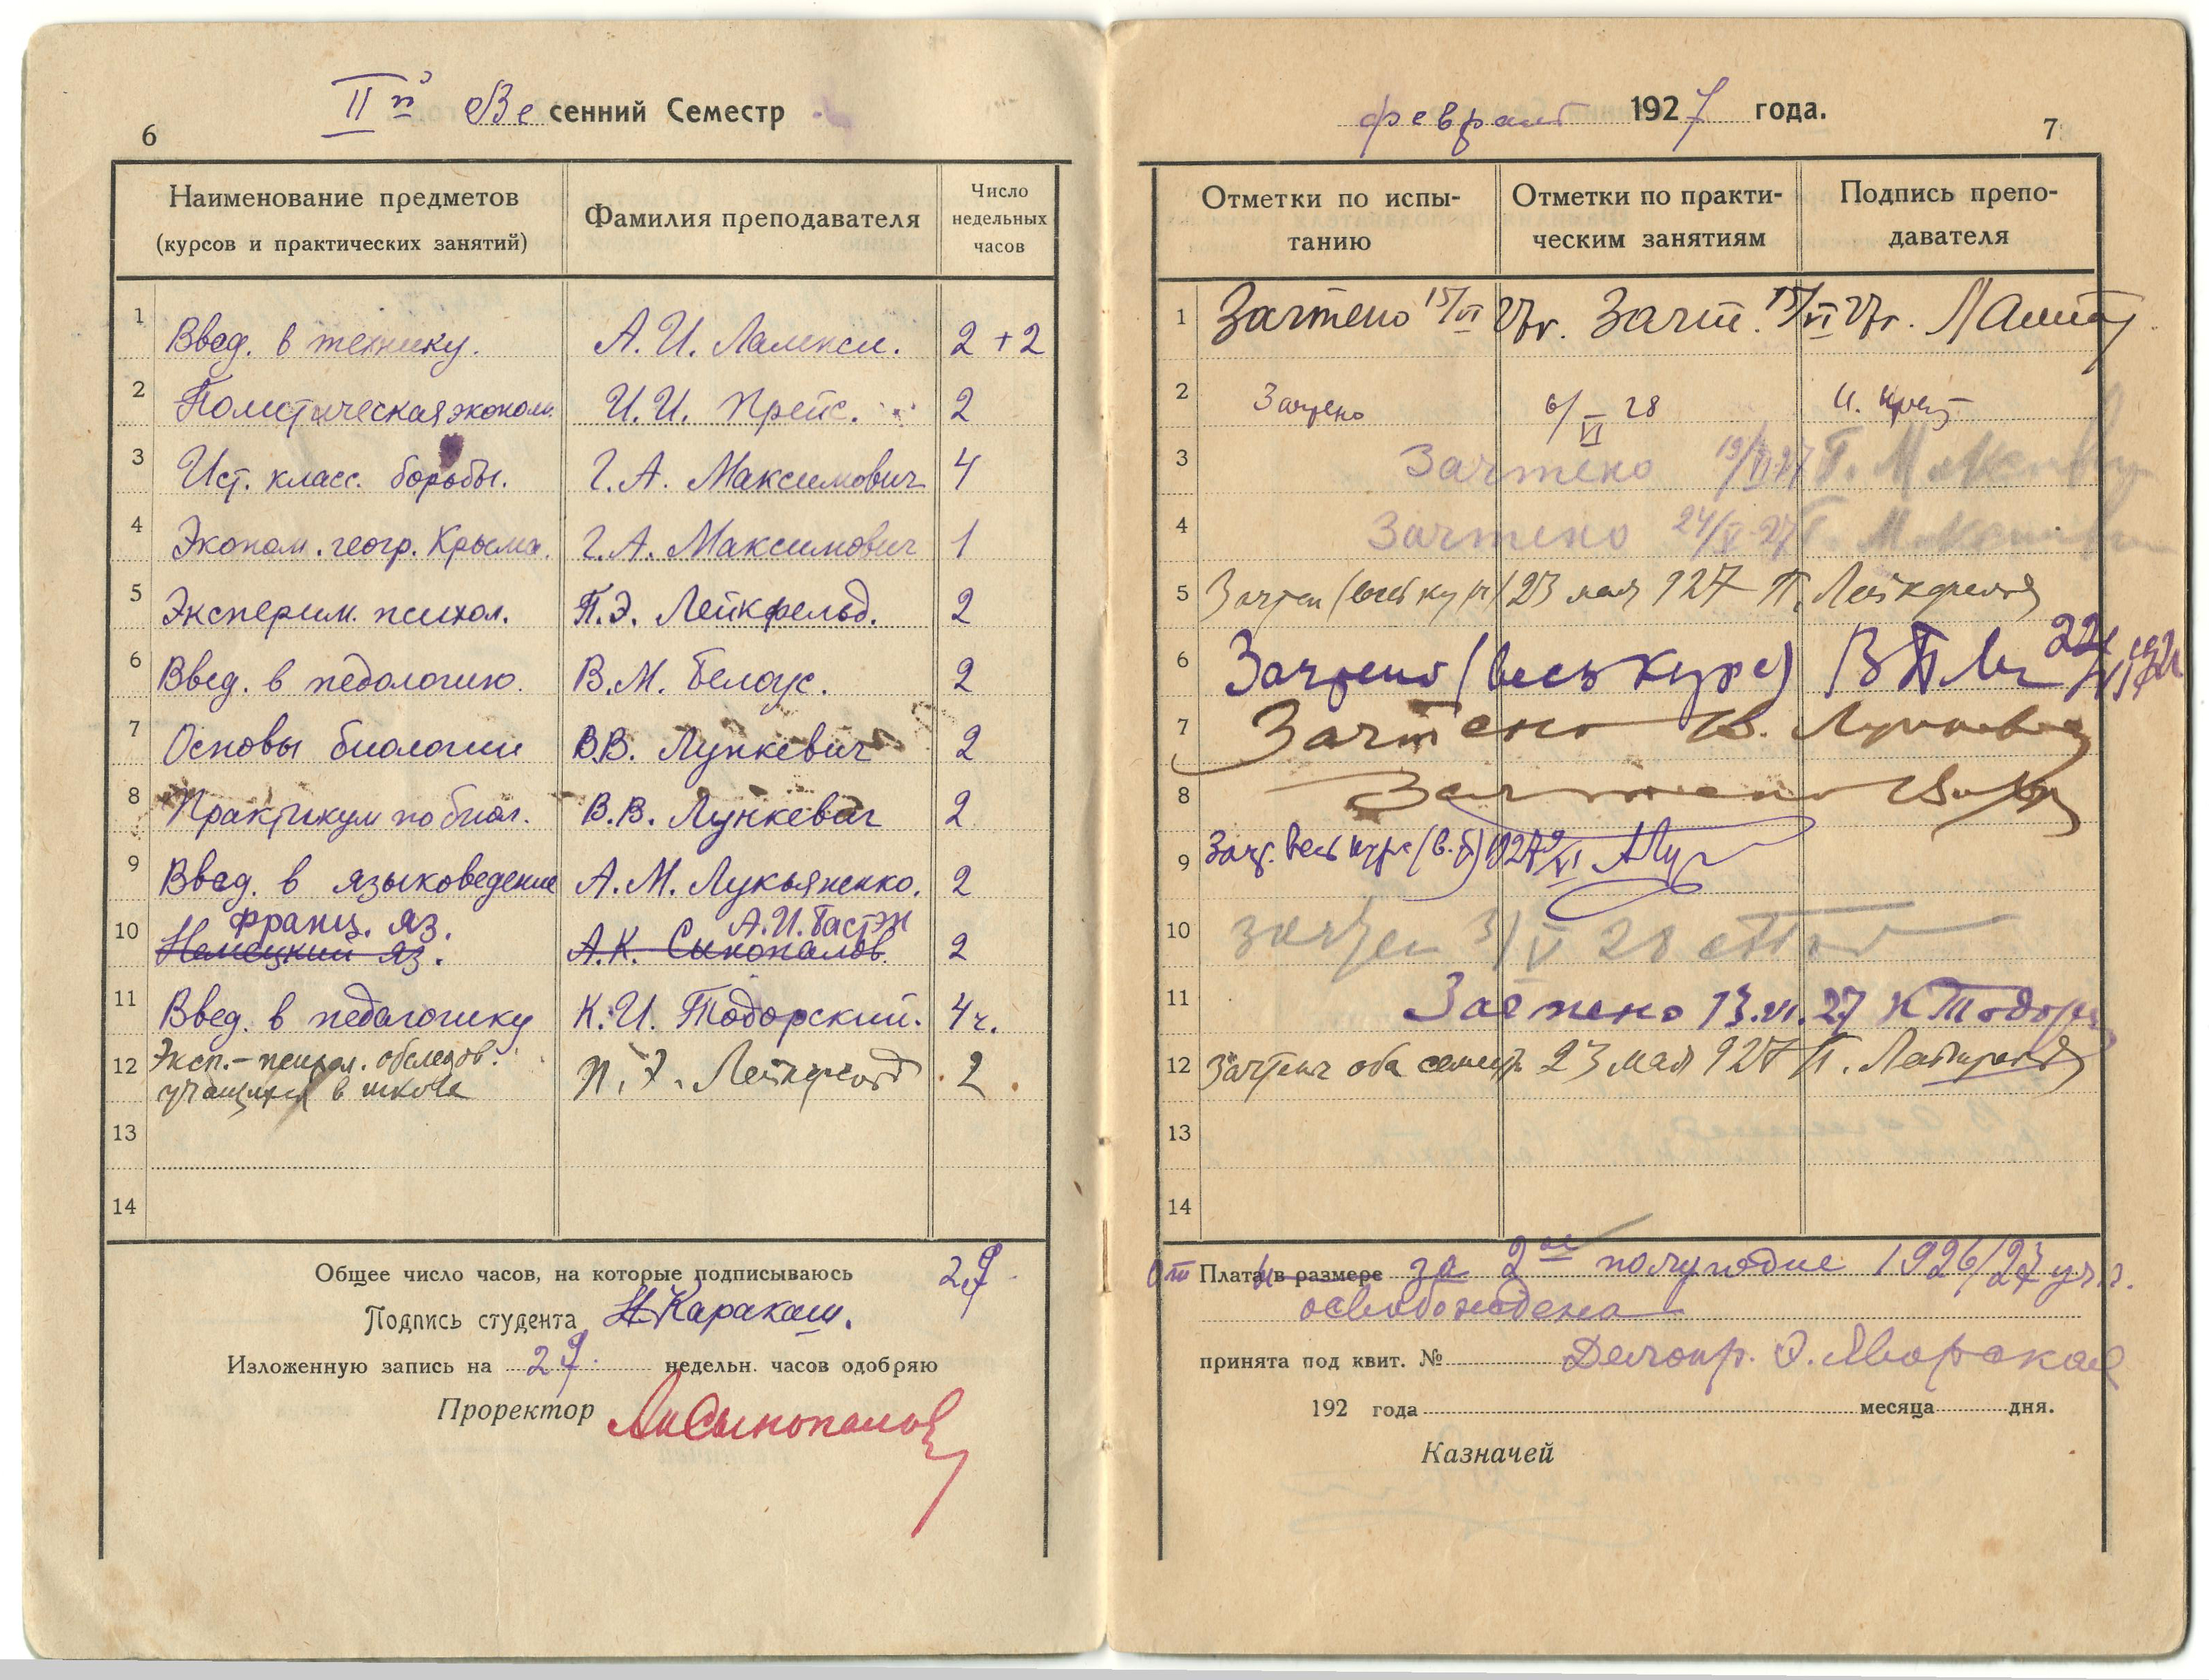 6
IIй Весенний Семестр
Наименование предметов
(курсов и практических занятий)
Фамилия преподавателя
Число
недельных
часов
1 Введ. в технику. А. И. 2 + 2
2 Политическая эконом. И. И. Прейс. 2
3 Ист. класс. борьбы. Г. А. Максимович 4
4 Эконом. геогр. Крыма. Г. А. Максимович 1
5 Эксперим. психол. П. Э. Лейкфельд. 2
6 Введ. в педологию. В. М. Белоус. 2
7 Основы биологии В. В. Лункевич 2
8 Практикум по биол. В. В. Лункевич 2
9 Введ. в языковедение А. М. Лукьяненко. 2
франц. яз. А. И. Бастэн
10 Немецкий яз. А. К. Сынопалов. 2
11 Введ. в педагогику К. И. Тодорский. 4 ч.
12 Эксп.-психол. обследов. П. Э. Лейкфельд 2
учащихся в школе
13
14
Общее число часов, на которые подписываюсь 29
Подпись студента Н Каракаш.
Изложенную запись на 29 недельн. часов одобряю
Проректор Сынопалов
февраль 1927 года.
7
Отметки по испы-
танию
Отметки по практи-
ческим занятиям
Подпись препо-
давателя
1 Зачтено 15/VI 27г. Зачт. 15/VI 27г.
2 Зачтено 6/VI 28 И. Прейс
3 Зачтено 19/VI 27 Г. Максимович
4 Зачтено 24/V 27 Г. Максимович
5 Зачтен (весь курс) 23 мая 927 П. Лейкфельд
6 Зачтено (весь курс)
7 Зачтено В. Лункевич
8 Зачтено
9 Зачт. весь курс
10 зачтен 31/V 28
11 Зачтено 13.VI.27 К Тодорский
12 Зачтены оба семестр 23 мая 927 П. Лейкфельд
13
14
От Платы в размере за 2ое полугодие 1926/27 уч. г.
освобождена
принята под квит. № Делопр. Э. Яворская
192 года месяца дня.
Казначей